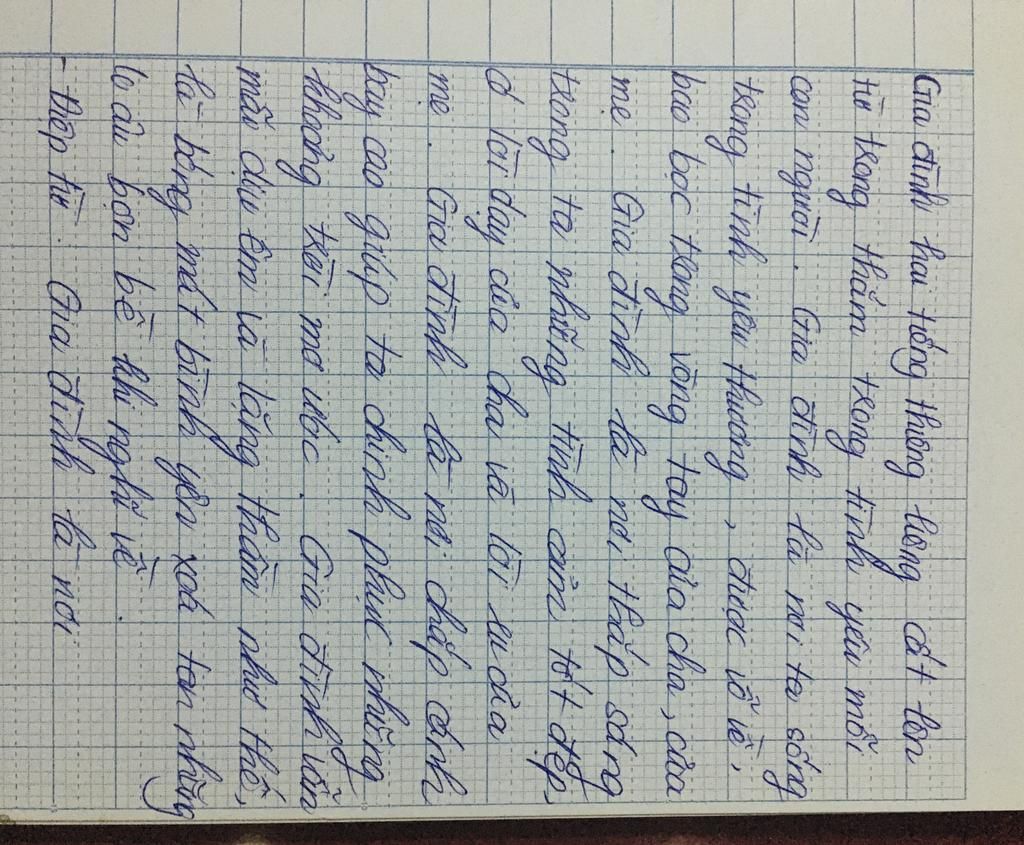 Gia đình hai tiếng thiêng liêng cất lên
từ trong thẳm trong tình yêu mỗi
con người. Gia đình là nơi ta sống
trong tình yêu thương, được vỗ về,
bao bọc trong vòng tay của cha, của
mẹ. Gia đình là nơi thắp sáng
trong ta những tình cảm tốt đẹp,
ở lời dạy của cha và lời ru của
mẹ. Gia đình là nơi chắp cánh
bay cao giúp ta chinh phục những
khoảng trời mơ ước. Gia đình vẫn
mãi dịu êm và lặng thầm như thế,
là bóng mát bình yên xoá tan những
lo âu bộn bề khi nghĩ về.
- Điệp từ: Gia đình là nơi